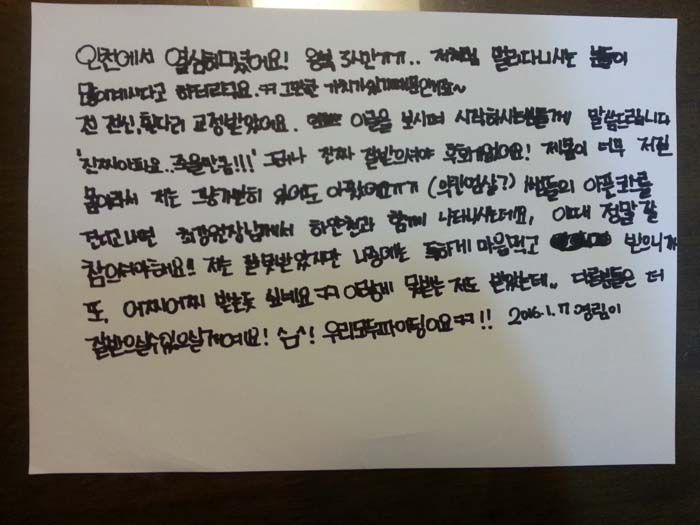 인천에서 열심히다녔어요! 왕복 3시간ㄲㄲ.. 저처럼 멀리다니시는 분들이
많이계시다고 하더라구요.ㅋㅋ 그만한 가치가있기때문인가요~
전 전신,휜다리 교정받았어요. 이글을 보시며 시작하시는분들께 말씀드립니다
'진짜아파요..죽을만큼!!!' 그러나 진짜 잘받으셔야 후회가없어요! 제몸이 너무 저질
몸이라서 저는 그냥가만히 있어도 아팠어요ㄲㄲ 쌤들의 아픈 를
견디고나면 최강원장님께서 하얀천과 함께 나타나시는데요, 이때 정말 잘
참으셔야해요! 저는 잘못받았지만 나중에는 독하게 마음먹고 받으니까
또, 어찌어찌 받는듯 싶네요ㅋㅋ 이렇게 못받는 저도 받았는데.. 다른분들은 더
잘받으실수있으실거에요! ^ㅁ^! 우리모두파이팅이요ㅋㅋ!! 2016.1.7 영림이